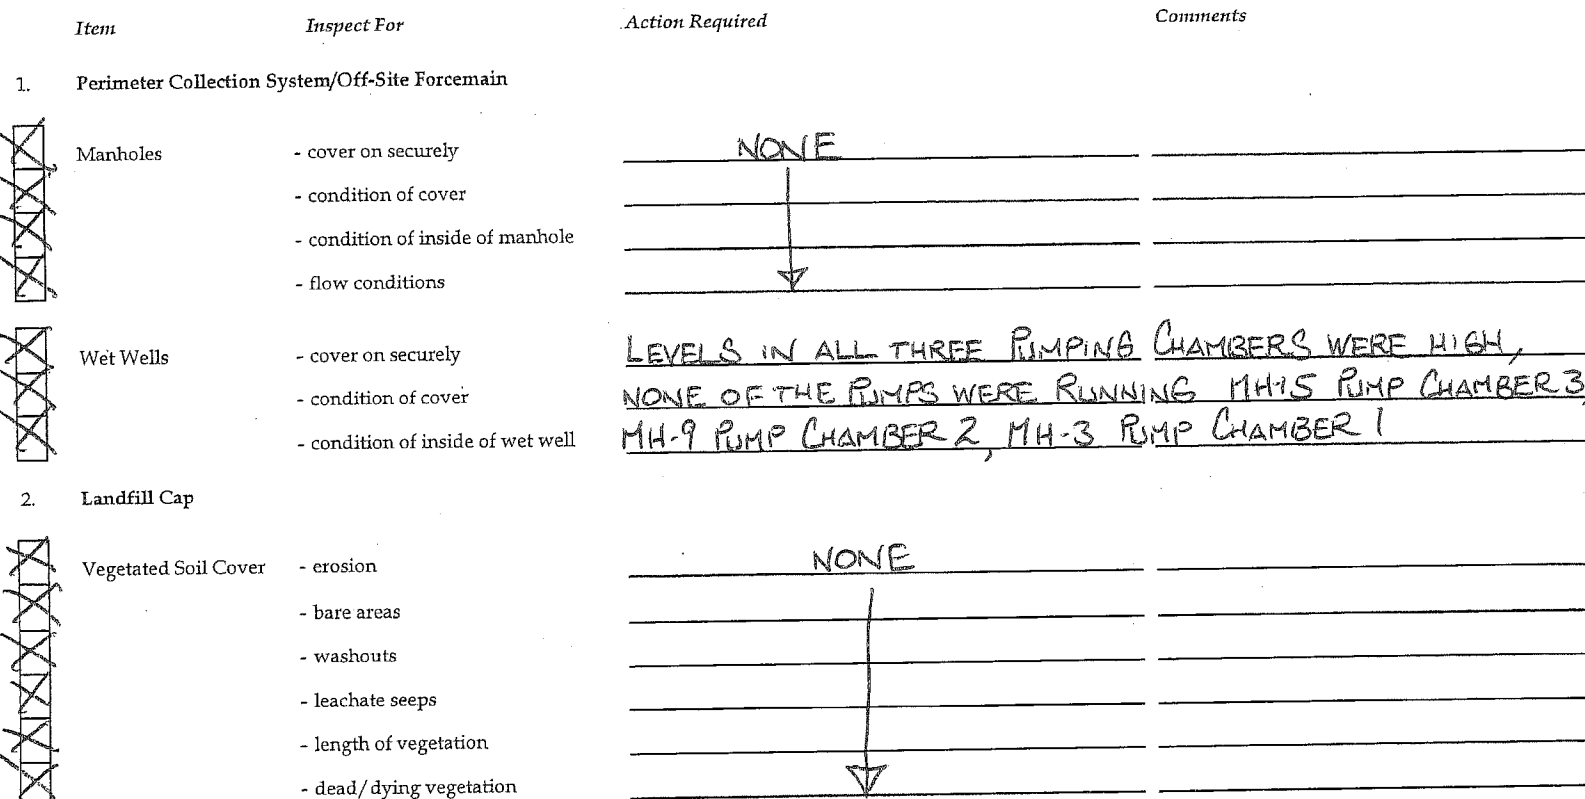 Item Inspect For Action Required Comments
1. Perimeter Collection System/Off-Site Forcemain
Manholes - cover on securely NONE
- condition of cover
- condition of inside of manhole
- flow conditions
Wet Wells - cover on securely LEVELS IN ALL THREE PUMPING CHAMBERS WERE HIGH,
- condition of cover NONE OF THE PUMPS WERE RUNNING MH-15 PUMP CHAMBER 3,
- condition of inside of wet well MH-9 PUMP CHAMBER 2, MH-3 PUMP CHAMBER 1
2. Landfill Cap
Vegetated Soil Cover - erosion NONE
- bare areas
- washouts
- leachate seeps
- length of vegetation
- dead/dying vegetation